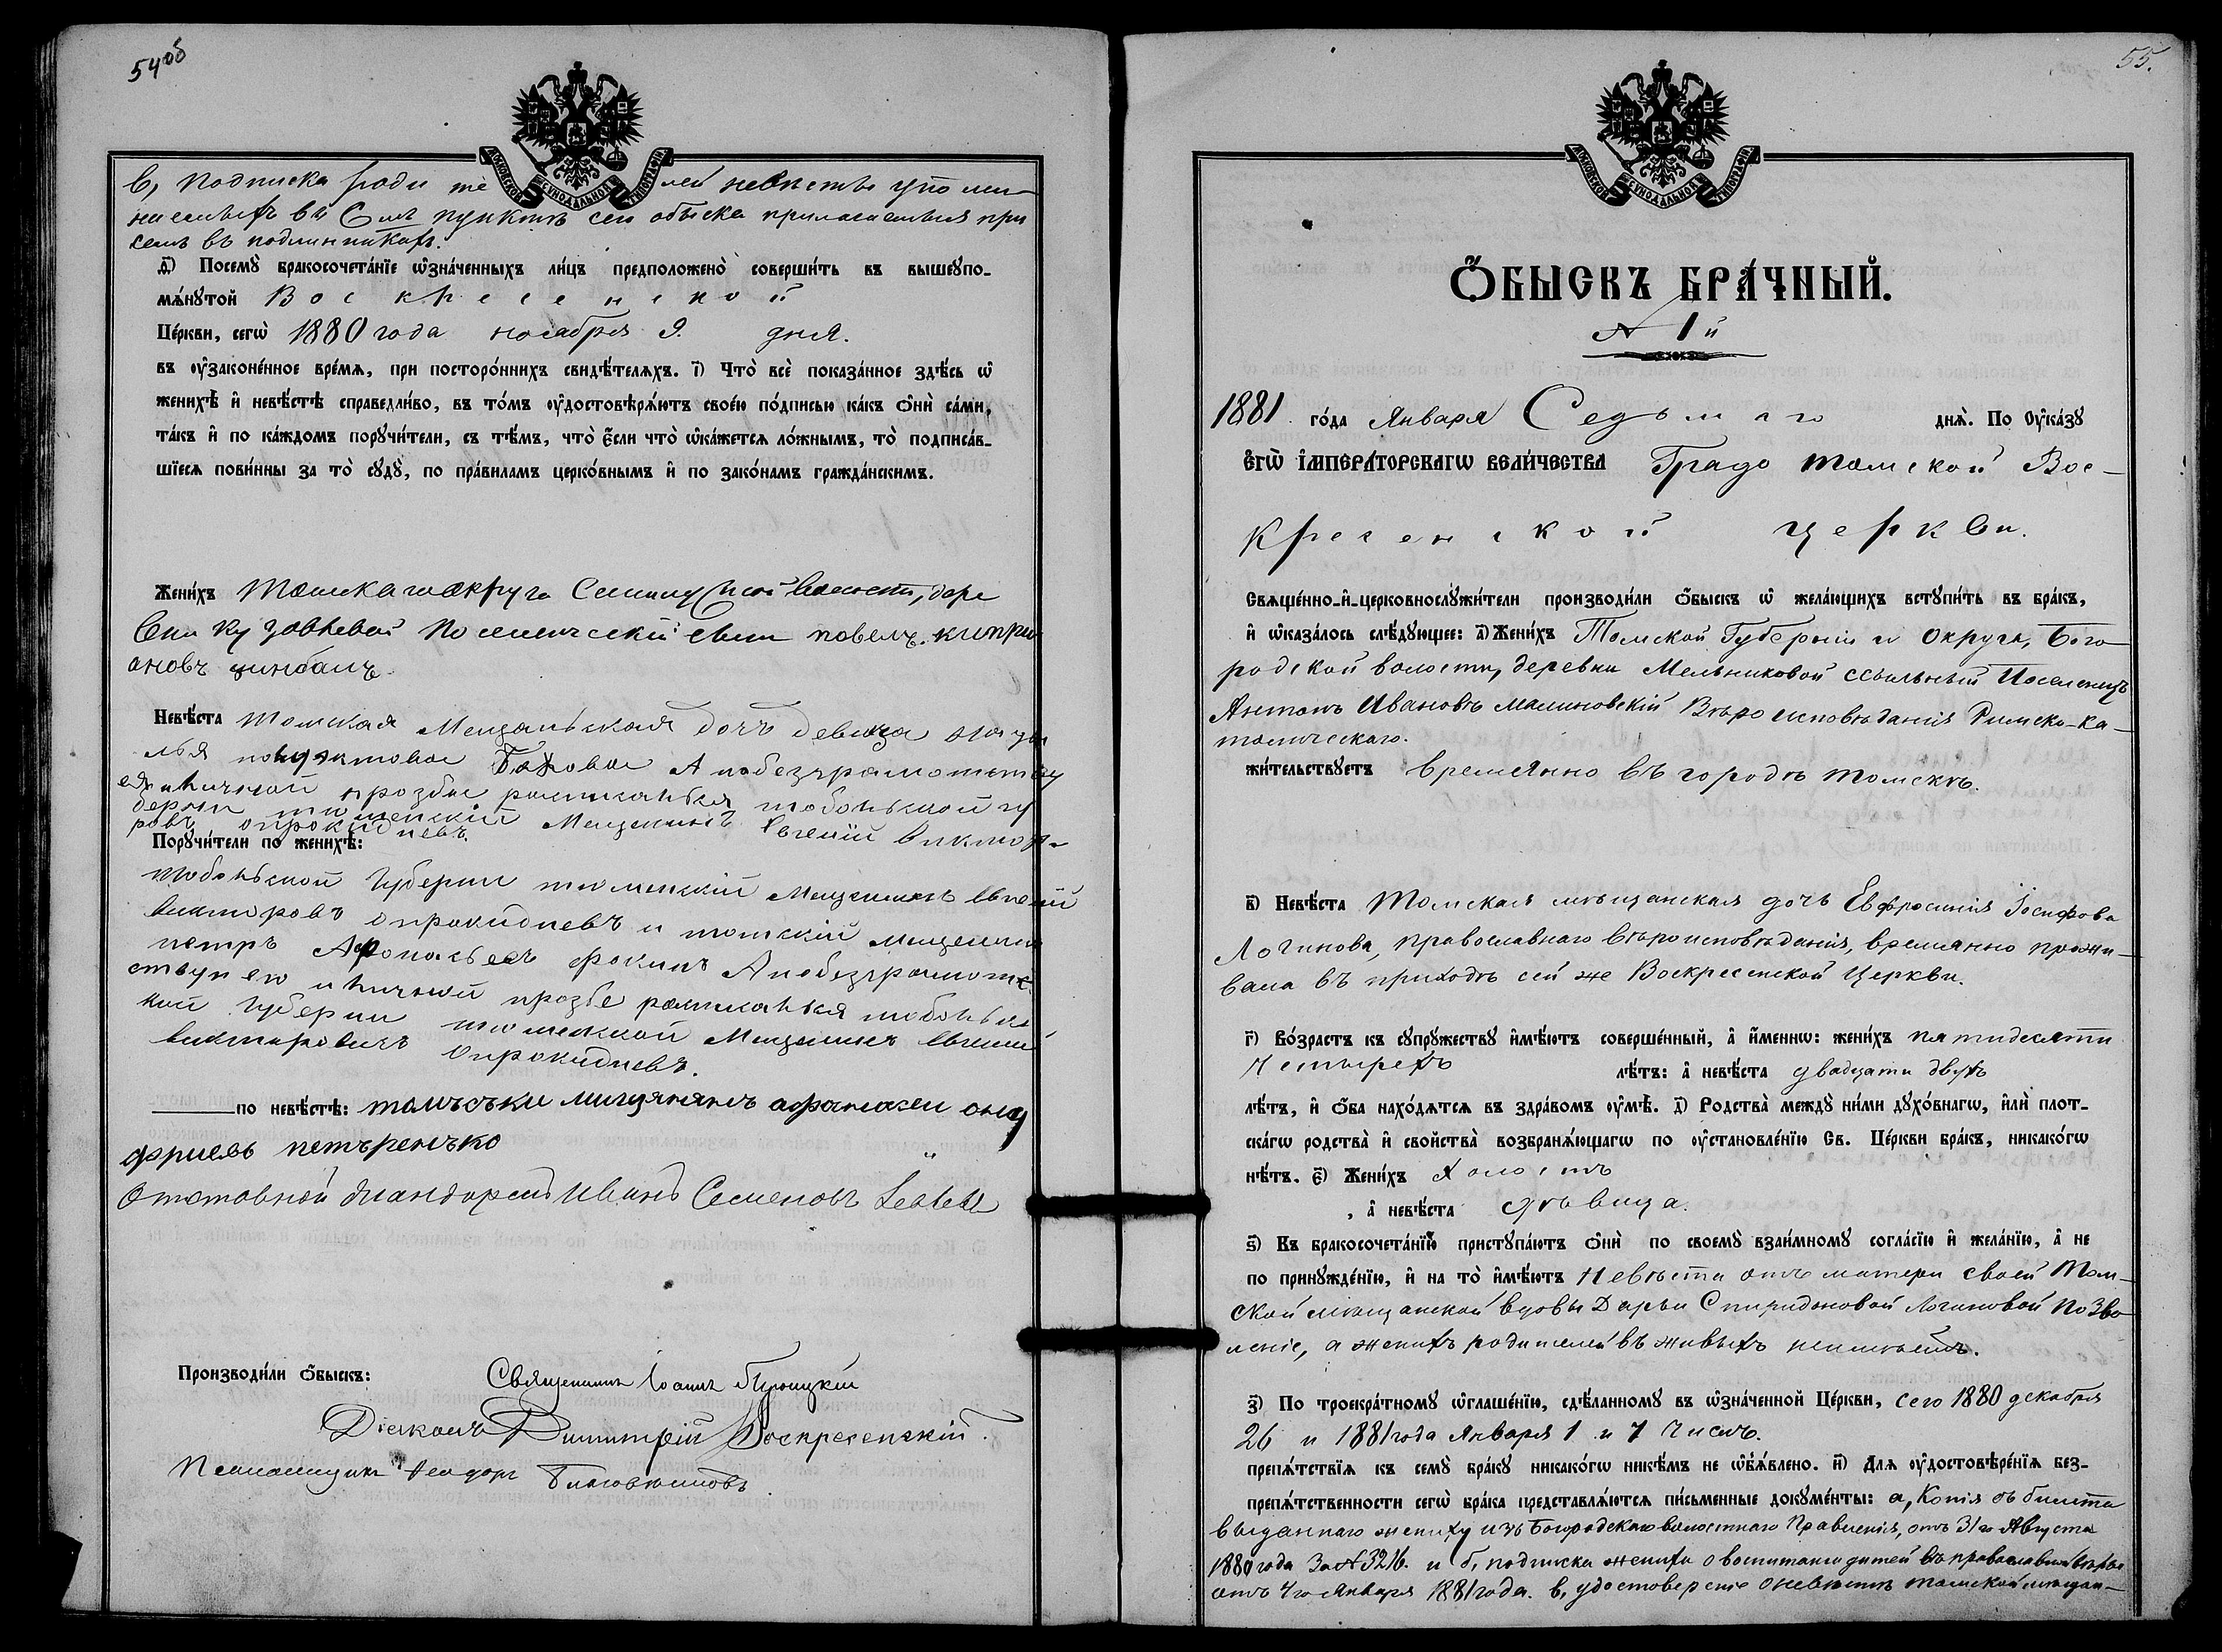 54 об
МОСКОВСКОЙ СѴНОДАЛЬНОЙ ТИПОГРАФІИ
в, подписка родителей невѣсты упоми-
наемыхъ въ 6мъ пунктѣ сего обыска прилагаемыя при
семъ въ подлинникахъ.
д҃і) Посемꙋ̀ бракосочета́нїе ѡ҆зна́ченныхъ ли́цъ предположено̀ соверши́ть въ вышеꙋпо-
мѧ́нꙋтой Воскресенской
Це́ркви, сегѡ̀ 1880 года ноября 9. дня.
въ ᲂу҆законе́нное вре́мѧ, при посторо́ннихъ свидѣ́телѧхъ. і҃) Что̀ всѐ показа́нное здѣ́сь ѡ҆
женихѣ̀ и҆ невѣ́стѣ справедли́во, въ то́мъ ᲂу҆достовѣрѧ́ютъ свое́ю по́дписью ка́къ ѻ҆нѝ са́ми,
та́къ и҆ по ка́ждомъ порꙋчи́тели, съ тѣ́мъ, что̀ є҆́сли что̀ ѡ҆ка́жетсѧ ло́жнымъ, то̀ подписа́в-
шїесѧ пови́нны за то̀ сꙋдꙋ̀, по пра́виламъ церко́внымъ и҆ по зако́намъ гражда́нскимъ.
Жени́хъ Томскаго округа Семилужной волости, дере
вни Кузовлевой поселенческій сынъ повелъ киприановъ
Невѣ́ста Томская Мещанская дочь девица
А по безграмотству
ея и личной прозбе росписалься тобольской гу
берни тюменскій Мещенинъ Евгеній Виктор-
ровъ опрокидневъ.
Порꙋчи́тели по женихѣ̀:
тобольской Губерни тюменскій Мещенинъ Евгеній
викторовъ опрокидневъ и томскій мещенинъ
петръ Афонасьевъ фокинъ А по безграмот-
ству его и личной прозбе росписалься тобольс
кой Губерни тюменской Мещенинъ Евгений
викторовичъ Опрокидневъ.
по невѣ́стѣ: томъсъки мищянинъ афанасеи ону
фриевъ петъренъко
Отставной Иванъ Семеновъ
Производи́ли ѻ҆́быскъ: Священникъ Іоаннъ Троицкій
Діаконъ Димитрій Воскресенскій.
Псаломщикъ Ѳеодоръ
55.
МОСКОВСКОЙ СѴНОДАЛЬНОЙ ТИПОГРАФІИ
Ѻ҆́БЫСКЪ БРА́ЧНЫЙ.
№ 1й
1881 го́да Января Седьмаго днѧ̀. По Оу҆ка́зꙋ
Є҆ГѠ̀ І҆МПЕРА́ТОРСКАГѠ ВЕЛИ́ЧЕСТВА Градо Томской Вос-
кресенской церкви.
Свѧще́нно-и҆-церковнослꙋжи́тели производи́ли ѻ҆́быскъ ѡ҆ жела́ющихъ встꙋпи́ть въ бра́къ,
и҆ ѡ҆каза́лось слѣ́дꙋющее: а҃) Жени́хъ Томской Губерніи и Округа, Бого-
родской волости, деревни Мельниковой ссыльный Поселенецъ
Антонъ Ивановъ Малиновскій Вѣроисповѣданія Римско-ка-
толическаго.
жи́тельствꙋетъ времянно въ городѣ Томскѣ.
в҃) Невѣ́ста Томская мѣщанская дочь Евфросинія Іосифова
Логинова, православнаго вѣроисповѣданія, времянно прожи-
вала въ приходѣ сей же Воскресенской Церкви.
г҃) Во́зрастъ къ сꙋпрꙋ́жествꙋ и҆мѣ́ютъ соверше́нный, а҆ и҆́меннѡ: жени́хъ пятидесяти
четырехъ лѣ́тъ: а҆ невѣ́ста двадцати двухъ
лѣ́тъ, и҆ ѻ҆́ба нахо́дѧтсѧ въ здра́вомъ ᲂу҆мѣ̀. д҃) Родства̀ междꙋ̀ ни́ми дꙋхо́внагѡ, и҆лѝ плот-
ска́гѡ родства̀ и҆ свойства̀ возбранѧ́ющагѡ по ᲂу҆становле́нїю Св. Це́ркви бра́къ, никако́гѡ
нѣ́тъ. є҃) Жени́хъ холостъ
, а҆ невѣ́ста дѣвица.
ѕ҃) Къ бракосочета́нїю пристꙋпа́ютъ ѻ҆нѝ по своемꙋ̀ взаи́мномꙋ согла́сїю и҆ жела́нїю, а҆ не
по принꙋжде́нїю, и҆ на то̀ и҆мѣ́ютъ Невѣста отъ матери своей Том-
ской мѣщанской вдовы Дарьи Спиридоновой Логиновой позво-
леніе, а женихъ родителей въ живыхъ неимѣетъ.
з҃) По троекра́тномꙋ ѡ҆глаше́нїю, сдѣ́ланномꙋ въ ѡ҆зна́ченной Це́ркви, сего 1880 декабря
26 и 1881 года Января 1 и 7 Чиселъ.
препѧ́тствїѧ къ семꙋ̀ бра́кꙋ никако́гѡ никѣ́мъ не ѡ҆б̾ѧ́влено. и҃) Длѧ̀ ᲂу҆достовѣре́нїѧ без-
препѧ́тственности сегѡ̀ бра́ка представлѧ́ютсѧ пи́сьменные докꙋме́нты: а, Копія съ билета
выданнаго жениху изъ Богородскаго волостнаго Правленія, отъ 31го Августа
1880 года За № 3216. и б, подписка жениха о воспитаніи дѣтей въ православной вѣрѣ
отъ 4го Января 1881 года. в, удостоверение о невѣстѣ томской мѣщан-